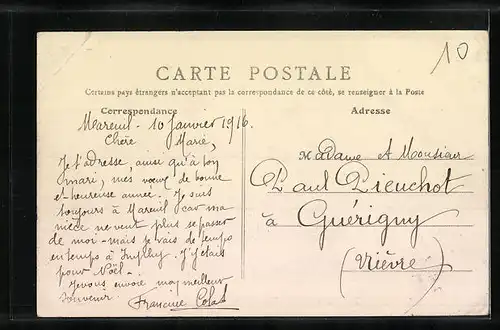 10
CARTE POSTALE
Certains pays étrangers n'acceptant pas la correspondance de ce côté, se renseigner à la Poste
Correspondance
Adresse
Mareuil - 10 Janvier 1916.
Chère Marie,
Je t'adresse, ainsi qu'à ton
mari, mes vœux de bonne
et heureuse année. Je suis
toujours à Mareuil car ma
nièce ne veut plus se passer
de moi - mais je vais de temps
en temps à Imphy. J'y étais
pour Noël -
Je vous envoie mon meilleur
souvenir.
Francine Colas
Madame et Monsieur
Paul Pieuchot
à Guérigny
(Nièvre)